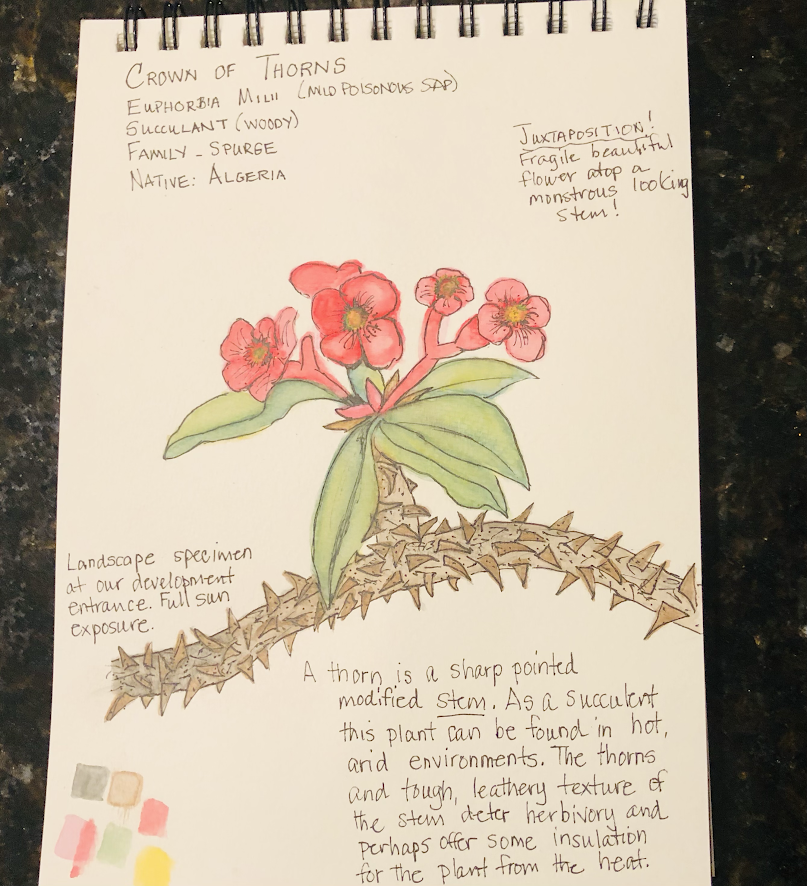 CROWN OF THORNS
EUPHORBIA MILII (MILD POISONOUS SAP)
SUCCULANT (WOODY)
FAMILY - SPURGE
NATIVE: ALGERIA
JUXTAPOSITION!
Fragile beautiful
flower atop a
monstrous looking
stem!
Landscape specimen
at our development
entrance. Full sun
exposure.
A thorn is a sharp pointed
modified stem. As a succulent
this plant can be found in hot,
arid environments. The thorns
and tough, leathery texture of
the stem deter herbivory and
perhaps offer some insulation
for the plant from the heat.